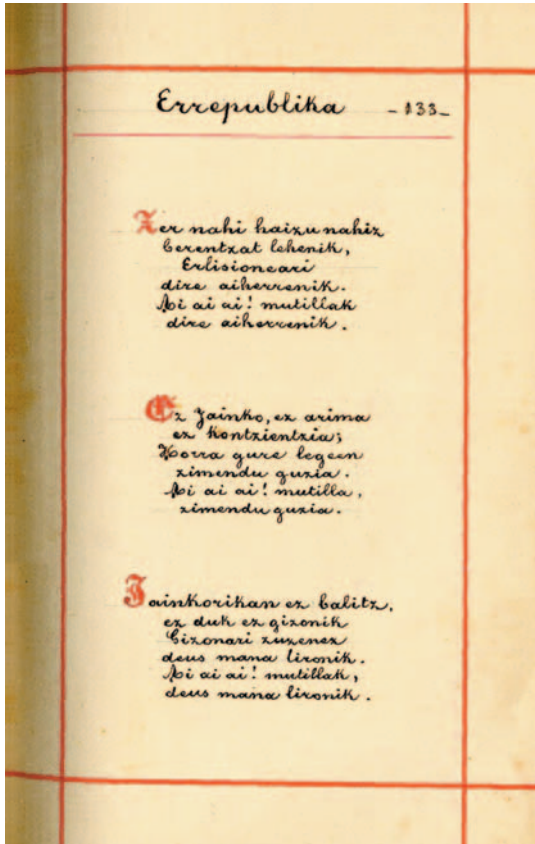 Errepublika -133-
Zer nahi haizu nahiz
berentzat lehenik,
Erlisioneari
dire aiherrenik.
Ai ai ai! mutillak
dire aiherrenik.
Ez Jainko, ez arima
ez kontzientzia;
Horra gure legeen
zimendu guzia.
Ai ai ai! mutilla,
zimendu guzia.
Jainkorikan ez balitz,
ez duk ez gizonik
Gizonari zuzenez
deus mana lironik.
Ai ai ai! mutillak,
deus mana lironik.